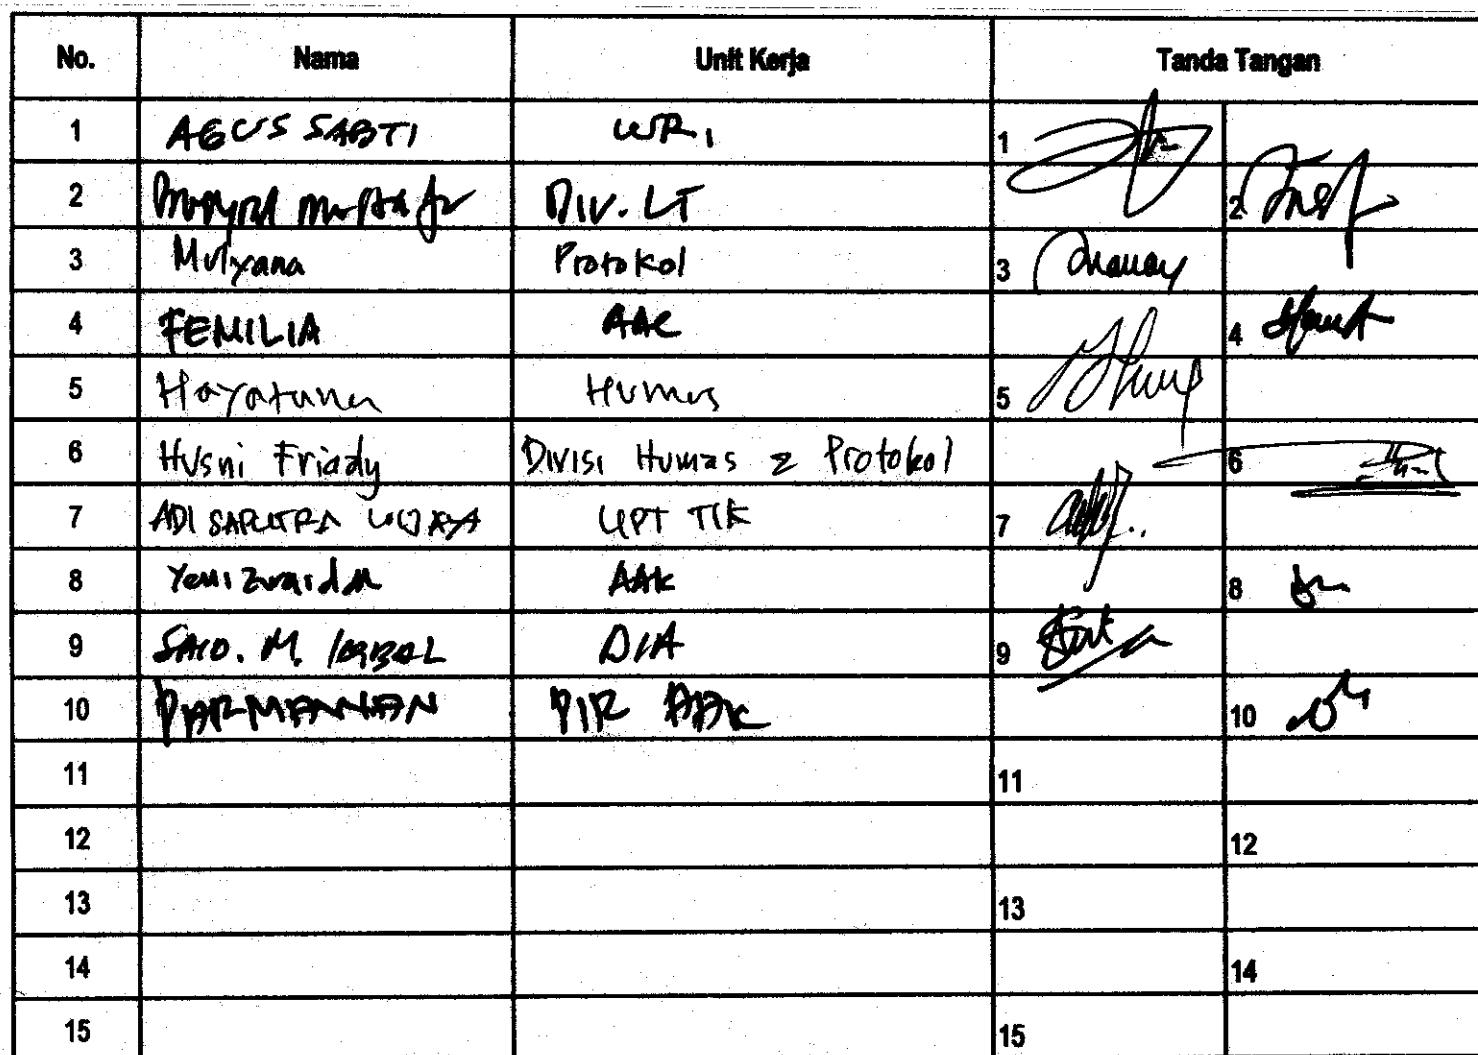 No. Nama Unit Kerja Tanda Tangan
1 AGUS SABTI WR 1 1
2 Div. LT 2
3 Mulyana Protokol 3
4 FEMILIA AAK 4
5 Hayatuna Humas 5
6 Husni Friady Divisi Humas & Protokol 6
7 ADI SAPUTRA WIJAYA UPT TIK 7
8 Yeni Zuraida AAK 8
9 SAID. M. IQBAL DIA 9
10 PARMANNAN AAK 10
11 11
12 12
13 13
14 14
15 15